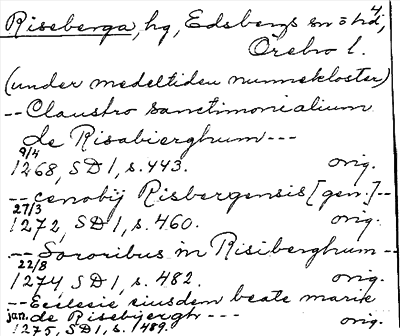 Riseberga, hg, Edsbergs sn ö hd,
Örebro l.
(under medeltiden nunnekloster)
-- Claustro sanctimonialium
de Risabierghum ---
9/4
1268, SD 1, s. 443. orig.
-- cenobij Risbergensis [gen.] --
27/3
1272, SD 1, s. 460. orig.
-- Sororibus in Risiberghum --
22/8
1274 SD 1, s. 482. orig.
-- Ecclesie eiusdem beate marie
jan. de Risebjergh --- orig.
1275, SD 1, s. 489.